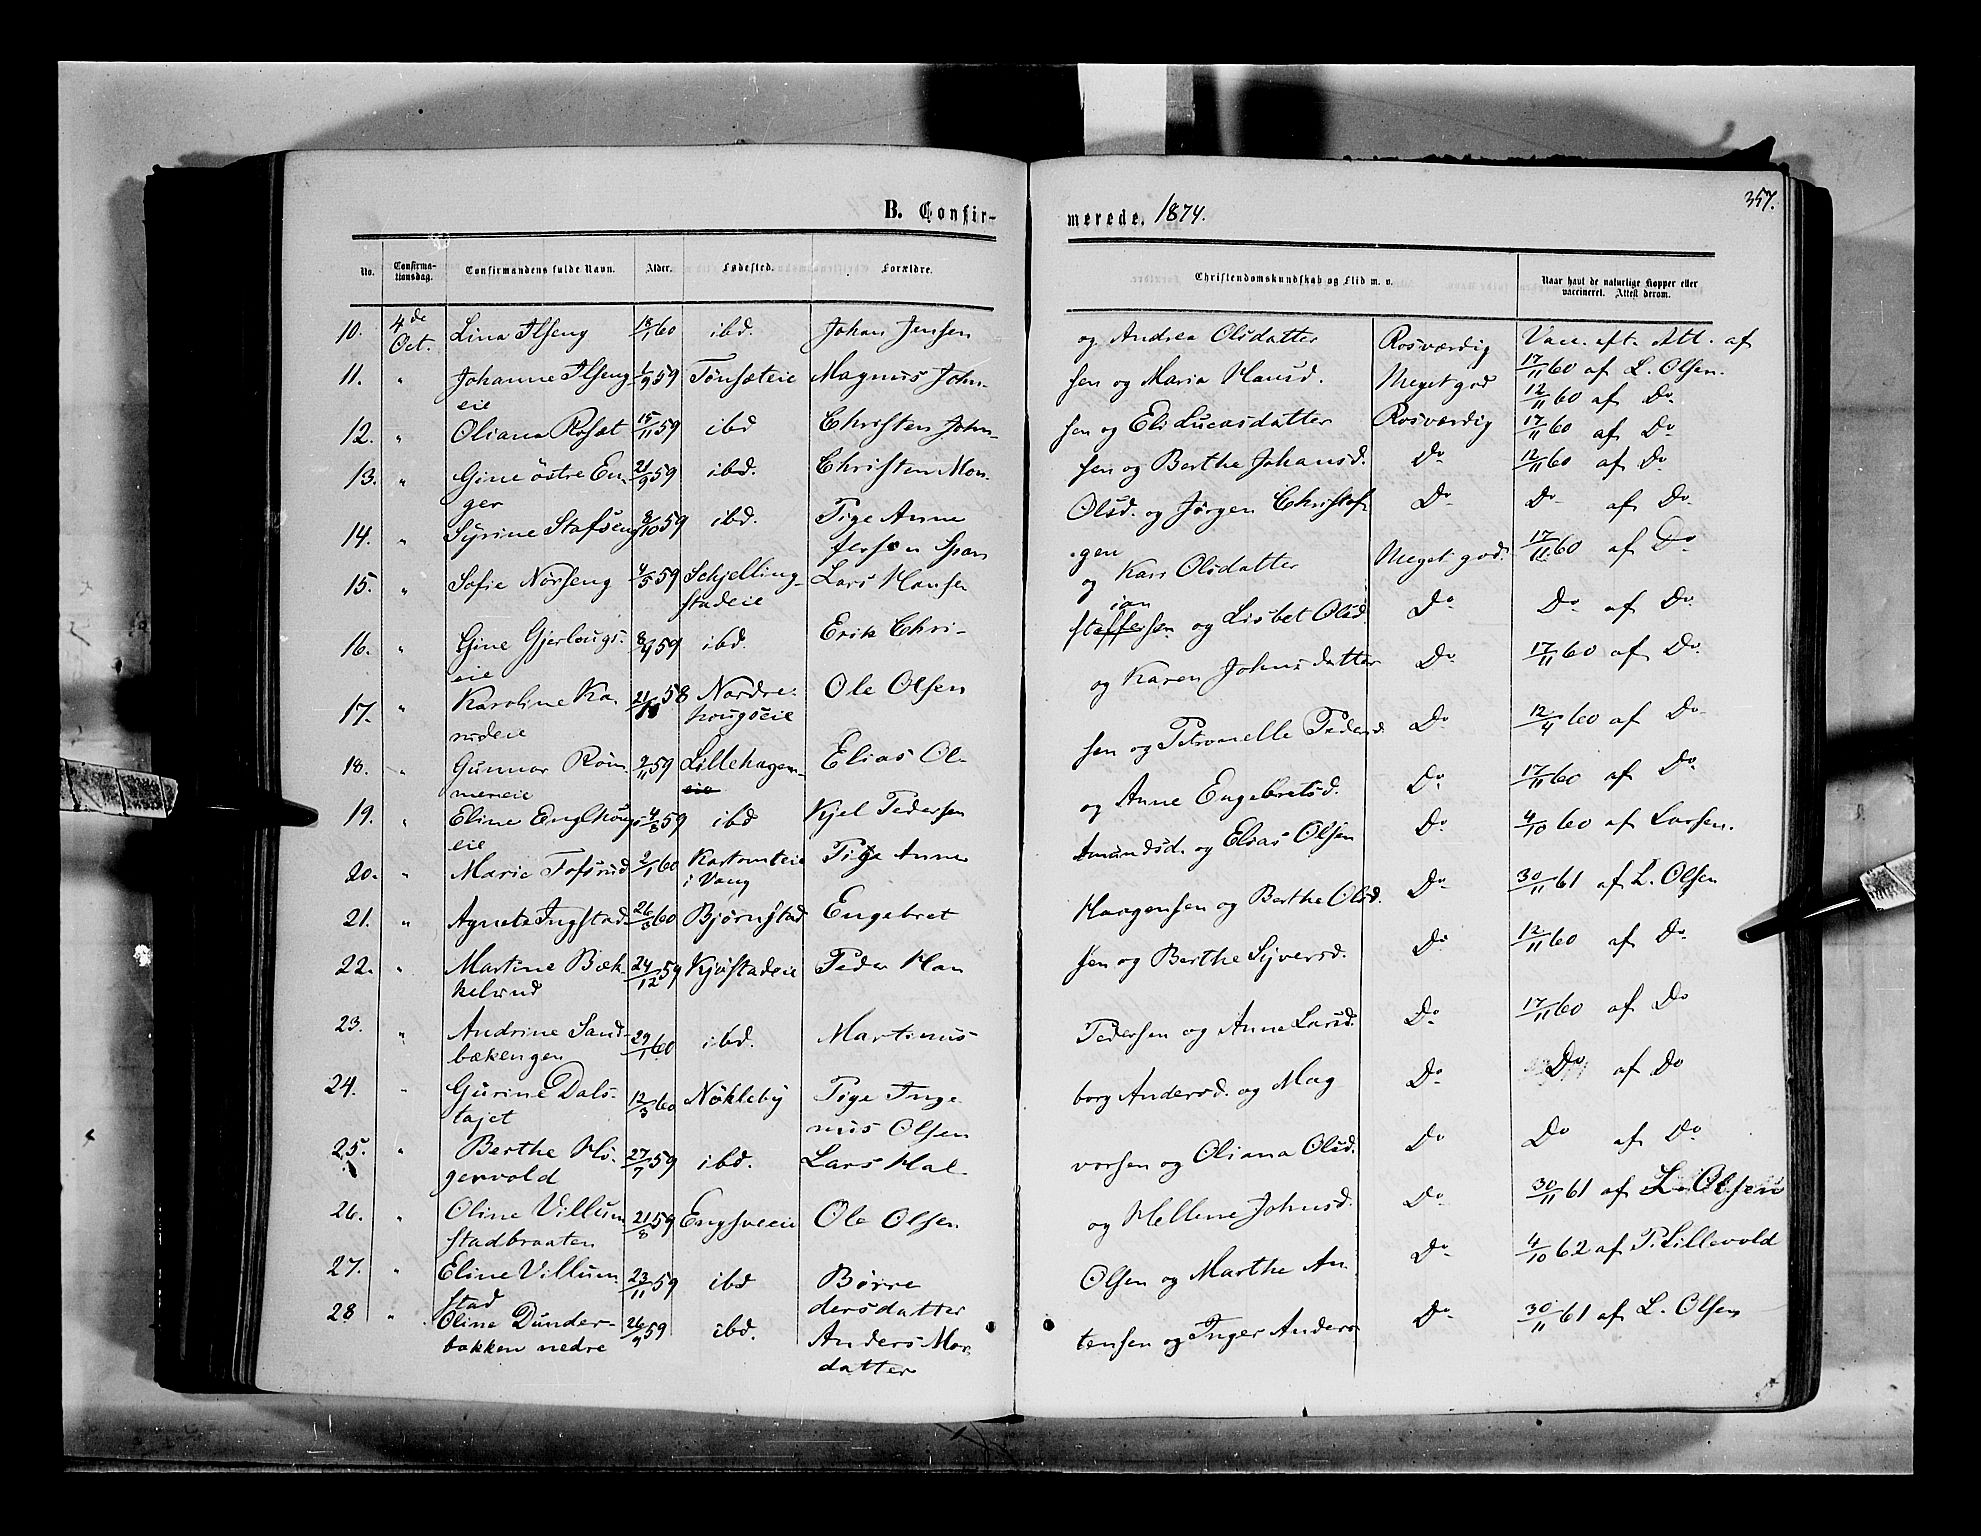 357.
B. Confir-
merede. 1874.
No.
Confirma-
tionsdag.
Confirmandens fulde Navn.
Alder.
Fødested.
Forældre.
Christendomskundskab og Flid m. v.
Naar havt de naturlige Kopper eller
vaccineret. Attest derom.
10. 4de Oct. Lina Ilseng 18/1 60 ibd. Johan Jensen og Andrea Olsdatter Rosværdig Vacc. eft. Att. af 17/11 60 af L. Olsen.
11. " Johanne Ilseng
eie 1/9 59 Tønsæteie Magnus John-
sen og Maria Hansd. Meget god 12/11 60 af Do
12. " Oliana Rosæt 15/11 59 ibd Christen John-
sen og Eli Lucasdatter Rosværdig 17/11 60 af Do
13. " Gine östre En-
ger 21/9 59 ibd. Christen Mon-
sen og Berthe Johansd. Do 12/11 60 af Do
14. " Syrine Stafseng 8/10 59 ibd. Pige Anne
Olsd. og Jørgen Christof-
fersen Span
gen Do Do af Do
15. " Sofie Nörseng 4/5 59 Schjelling-
stadeie Lars Hansen
og Kari Olsdatter Meget god. 17/11 60 af Do
16. " Gine Gjerlougs-
eie 8/4 59 ibd. Erik Chri-
stian
staffersen og Lisbet Olsd Do Do af Do
17. " Karoline Ka-
rudeie 21/11 58 Nordre-
hougseie Ole Olsen
og Karen Johnsdatter Do 17/11 60 af Do
18. " Gunnar Röm-
meneie 2/11 59 Lillehagen-
eie Elias Ol-
sen og Petronelle Pedersd. Do 12/4 60 af Do
19. " Eline Englhougs-
eie 4/8 59 ibd Kjel Pedersen
og Anne Engebretsd. Do 17/11 60 af Do
20. " Marie Tofsrud 2/1 60
i Vang Pige Anne
Amundsd. og Elias Olsen Do 4/10 60 af Larsen.
21. " Agnete Ingstad 26/3 60 Bjørnstad Engebret
Haagensen og Berthe Olsd. Do 30/11 61 af L. Olsen
22. " Martine Bæk-
kelund 24/12 59 Kjøstadeie Peder Han
sen og Berthe Syversd. Do 12/11 60 af Do
23. " Andrine Sand-
bækengen 29/1 60 ibd. Martinus
Pedersen og Anne Larsd. Do 17/11 60 af Do
24. " Gurine Dals-
tajet 12/3 60 Nökleby Pige Inge
borg Andersd. og Mag
nus Olsen Do Do af Do
25. " Berthe Hö-
gervold 27/7 59 ibd. Lars Hal-
vorsen og Oliana Olsd. Do Do af Do
26. " Oline Villum
stadbraaten 21/8 59 Engsveeie Ole Olsen
og Hellene Johnsd. Do 30/11 61 af L. Olsen
27. " Eline Villum
stad 23/11 59 ibd Børre
Olsen og Marthe An
dersdatter Do 4/10 62 af P. Lillevold
28 " Oline Dunder-
bakken nedre 26/9 59 ibd. Anders Mor
tensen og Inger Anders
datter Do 30/11 61 af L. Olsen